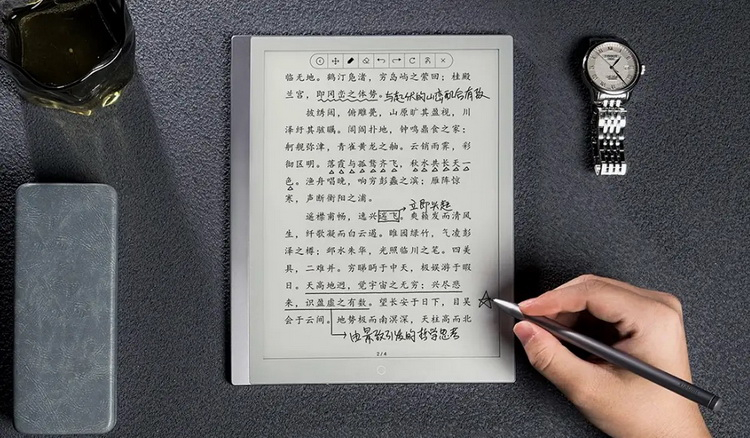 临无地。鹤汀凫渚，穷岛屿之萦回；桂殿
兰宫，即冈峦之体势。与起伏的山峦配合有致
披绣闼，俯雕甍，山原旷其盈视，川
泽纡其骇瞩。闾阎扑地，钟鸣鼎食之家；
舸舰弥津，青雀黄龙之舳。云销雨霁，彩
彻区明。落霞与孤鹜齐飞，秋水共长天一
色。渔舟唱晚，响穷彭蠡之滨；雁阵惊
寒，声断衡阳之浦。
立即兴起
遥襟甫畅，逸兴遄飞。爽籁发而清风
生，纤歌凝而白云遏。睢园绿竹，气凌彭
泽之樽；邺水朱华，光照临川之笔。四美
具，二难并。穷睇眄于中天，极娱游于暇
日。天高地迥，觉宇宙之无穷；兴尽悲
来，识盈虚之有数。望长安于日下，目吴
会于云间。地势极而南溟深，天柱高而北
由景致引发的哲学思考
2/4